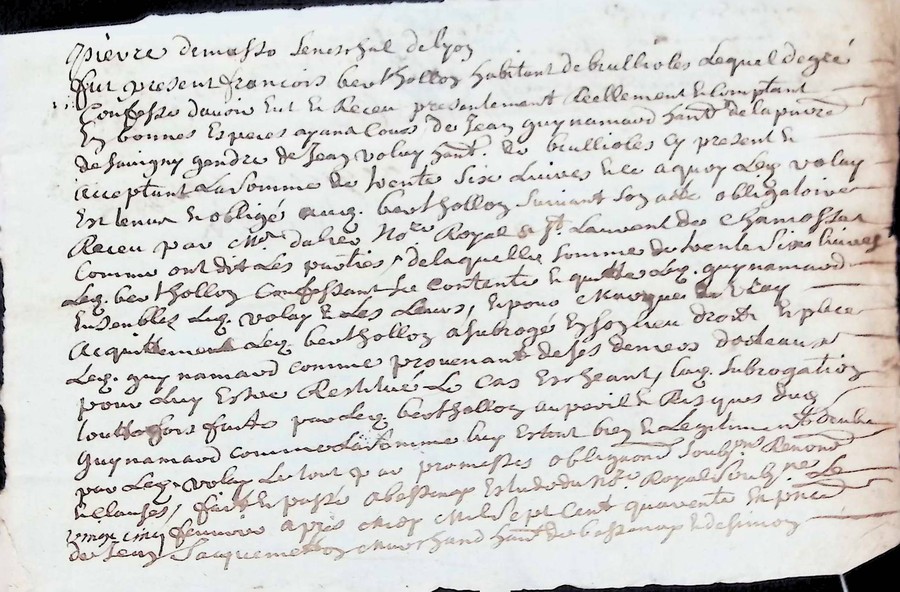 Pierre demasso seneschal de lyon
fut present francois berthollon habitant de brullioles Lequel de gré
Confesse davoir Eut et Receu presentement Reellement Et Comptant
En bonnes Especes ayant Cours de Jean guynamard hant. de la
de savigny gendre de Jean volay hant. de brullioles cy present et
acceptant La somme de trente six Livres Et ce a quoy Led. volay
Est tenus Et obligé aud. berthollon suivant son acte obligatoire
Receu par Me. dalier Nore Royal a st Laurent de Chamosset
Comme ont dit Les parties, de laquelle somme de trente six Livres
Led. berthollon Confessant se contente Et quitte Led. guynamard
Ensembles Led. volay Et Les Leurs, Et pour Marque de vray
acquittement Led. berthollon a subrogé En son Lieu droit Et place
Led. guynamard comme provenant de ses deniers dotteaux
pour Luy Estre Restitué Le Cas Escheant, Lad. subrogation
touttefois faitte par Led. berthollon au peril Et Risques dud.
guynamard comme La somme Luy Estant bien Et Legitiment dube
par Led. volay Le tout par promesses obligaons soubzons Renonons
Et clauses, fait Et passé a bassenay Estude du Nre Royal soubzne Le
vingt cinq fevrier apres Midy Mil sept Cent quarente En presence
de Jean Jacquemetton Marchand hant de bassenay Et de simon